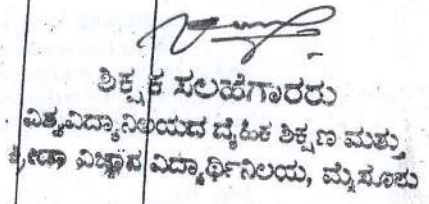 ಶಿಕ್ಷಕ ಸಲಹೆಗಾರರು
ವಿಶ್ವವಿದ್ಯಾನಿಲಯದ ದೈಹಿಕ ಶಿಕ್ಷಣ ಮತ್ತು
ಕ್ರೀಡಾ ವಿಜ್ಞಾನ ವಿದ್ಯಾರ್ಥಿನಿಲಯ, ಮೈಸೂರು